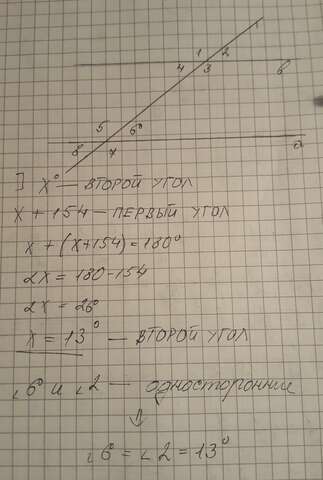 1 2
4 3 b
5 6°
8 7 a
] x° — ВТОРОЙ УГОЛ
x + 154 — ПЕРВЫЙ УГОЛ
x + (x+154) = 180°
2x = 180-154
2x = 26°
x = 13° — ВТОРОЙ УГОЛ
∠6 и ∠2 — односторонние
⇓
∠6 = ∠2 = 13°